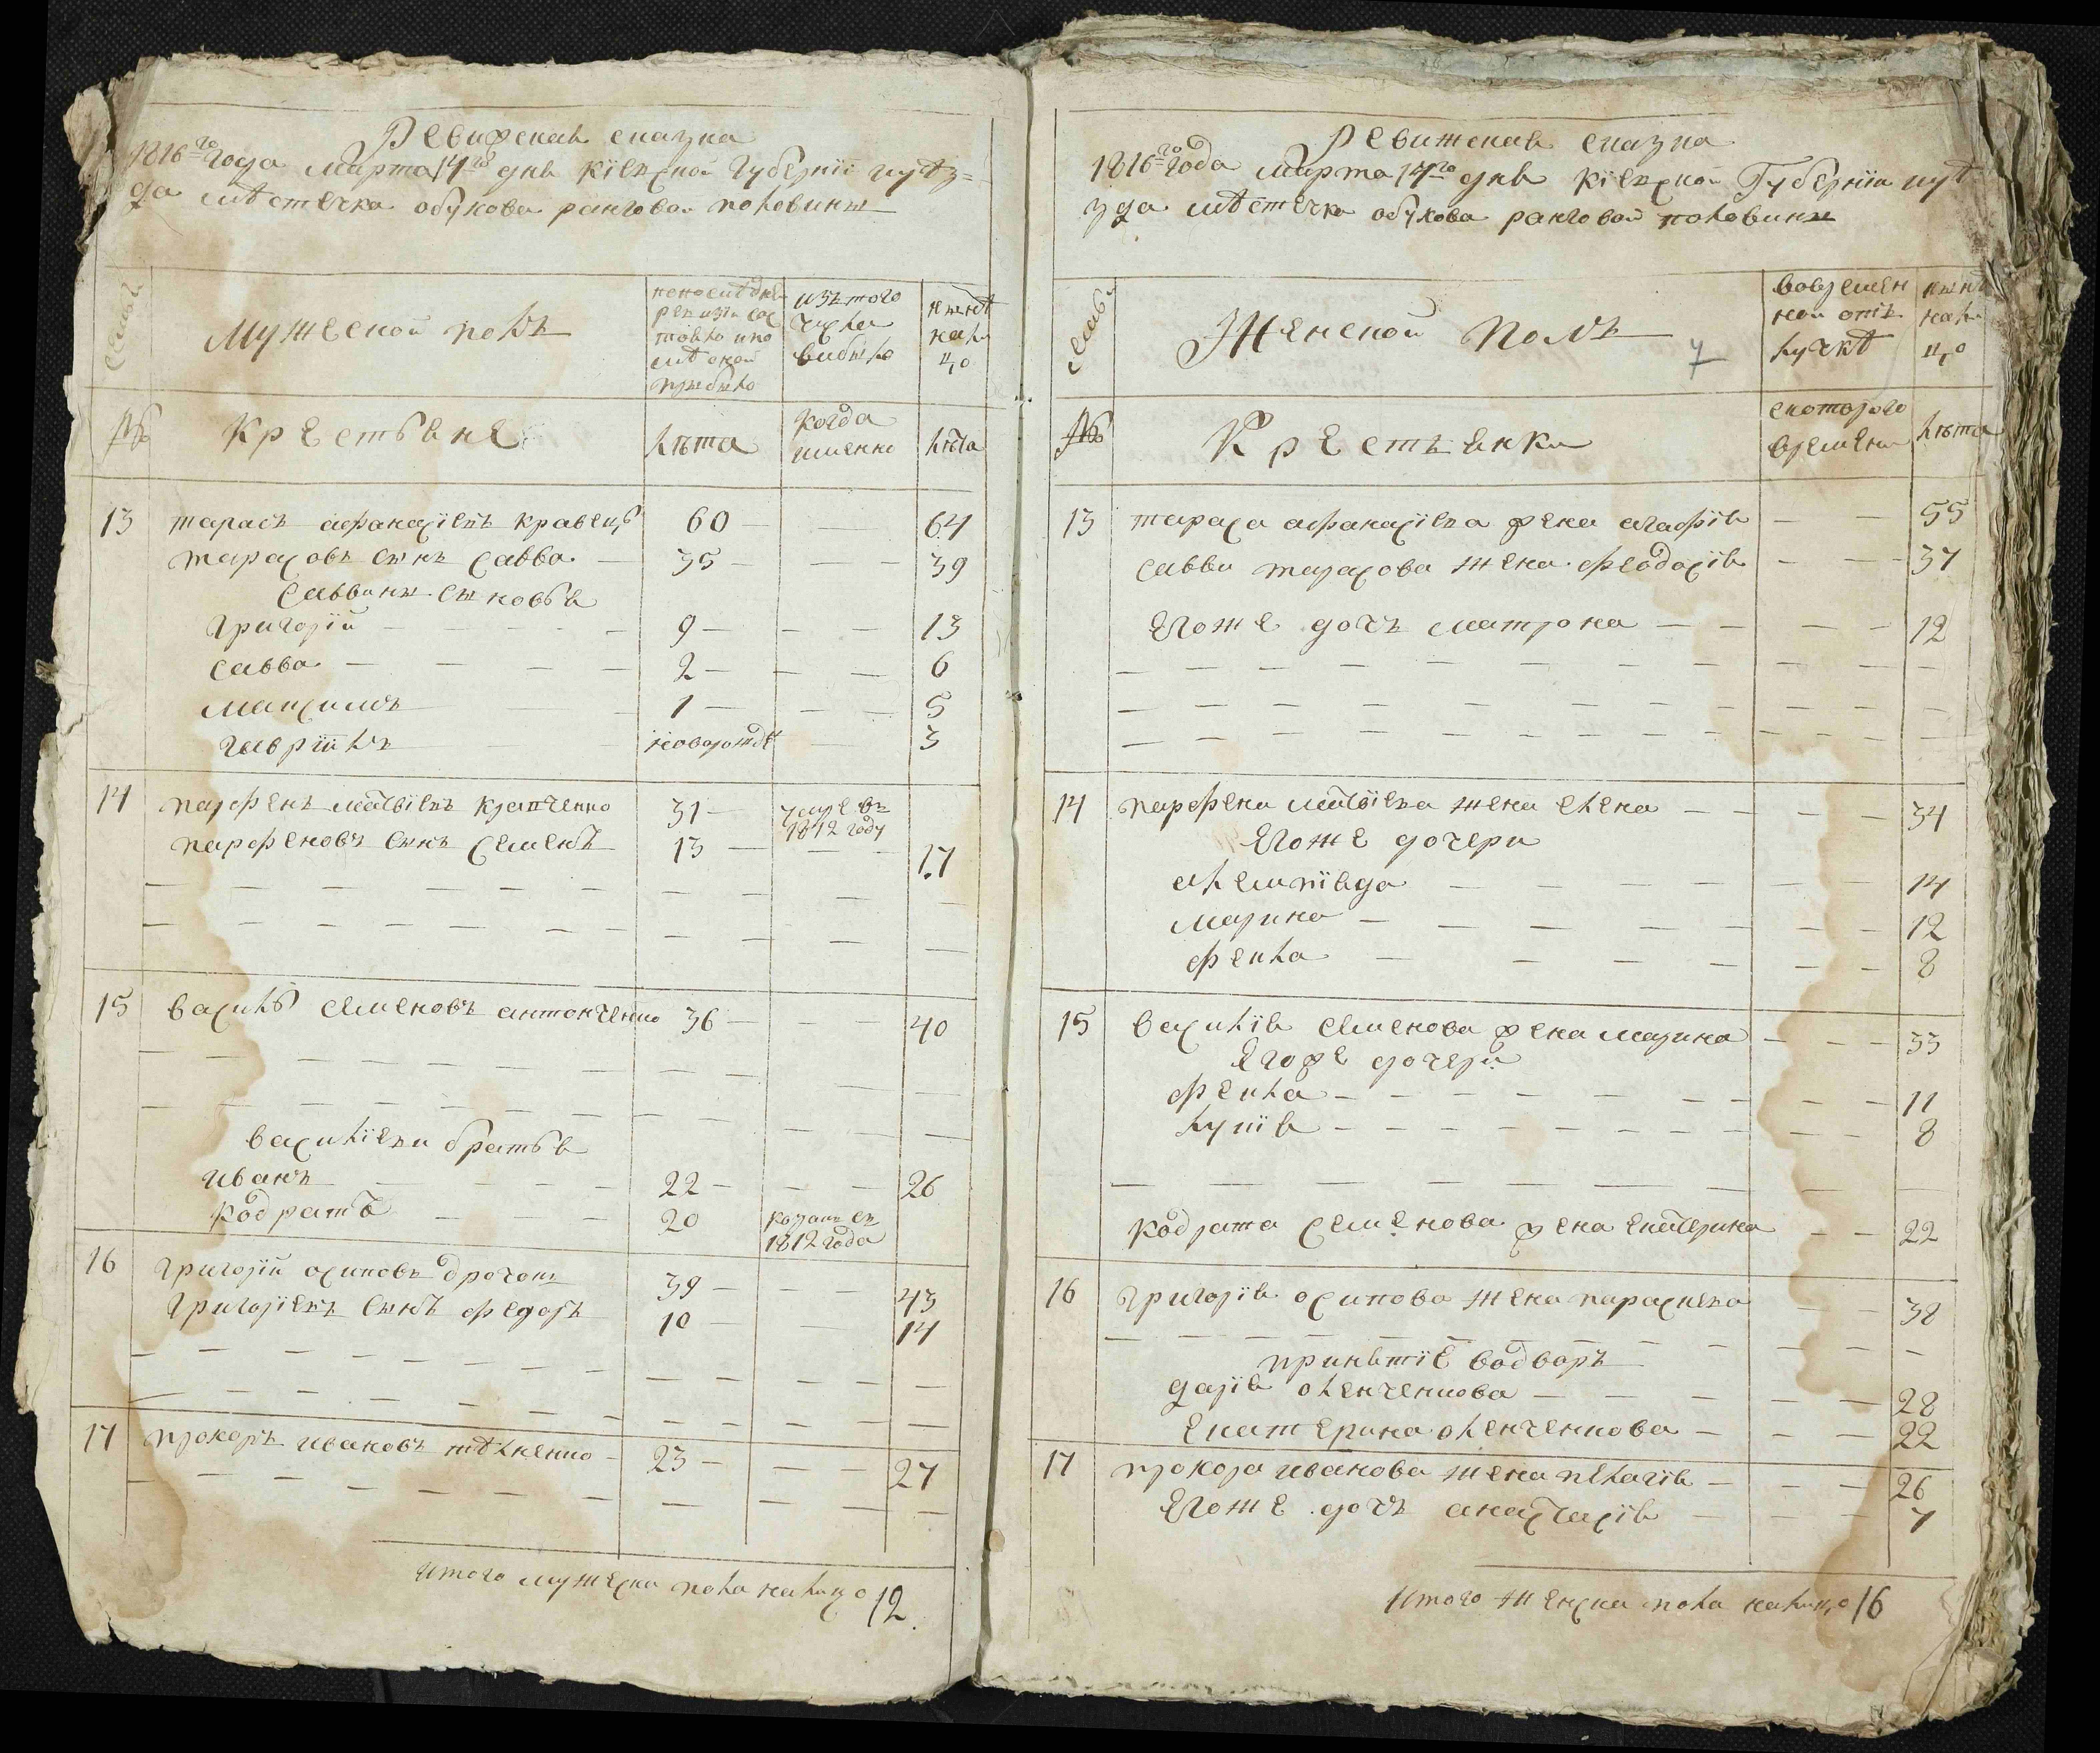 Ревизская сказка
1816го года марта 14го дня Кіевской Губерніи и уѣз=
да мѣстечка обухова ранговой половины
семьи
Мужеской полъ
по последней ревизіи состояло и после оной прибыло
изъ того числа выбыло
нынѣ на лицо
№
Крестьяне
Лѣта
Когда именно
Лѣта
13 тарасъ афанасіевъ кравецъ 60 — — 64
тарасовъ сынъ савва — 35 — — — 39
саввины сыновья
григорій — 9 — — — 13
савва — 2 — — — 6
максимъ 1 — — — 5
гавріилъ новорожде — 3
14 парфенъ матвіевъ 31 — умре въ 1812 году
парфеновъ сынъ семенъ 13 — — — 17
15 василь семеновъ антонченко 36 — — — 40
василіевы братья
иванъ — 22 — — — 26
кодратъ — 20 козакъ съ 1812 года
16 григорій осиповъ 39 — — — 43
григоріевъ сынъ федоръ 10 — — 14
17 прохоръ ивановъ 23 — — — 27
итого мужеска пола налицо 12.
Ревижская сказка
1816го года марта 14го дня Кіевской Губерніи и уѣ
зда мѣстечка обухова ранговой половины
семьи
Женской Полъ
7
во временной отлучкѣ
нынѣ на лицо
№
Крестьянки
с которого времени
Лѣта
13 тараса афанасіева жена агафія — — 55
саввы тарасова жена феодосія — — — 37
его же дочь матрона — — — — 12
14 парфена матвіева жена елена — — — — 34
его же дочери
олемпіяда — 14
марина — 12
фекла — 8
15 василія семенова жена марина — — — 33
его же дочери
фекла — 11
лукія — 8
кодрата семенова жена екатерина — — 22
16 григорія осипова жена параскева — — 38
принятіе во дворъ
дарія оленченкова — 28
екатерина оленченкова — — — — 22
17 прохора иванова жена пелагія — — — 26
его же дочь анастасія — — — 7
Итого женска пола налицо 16